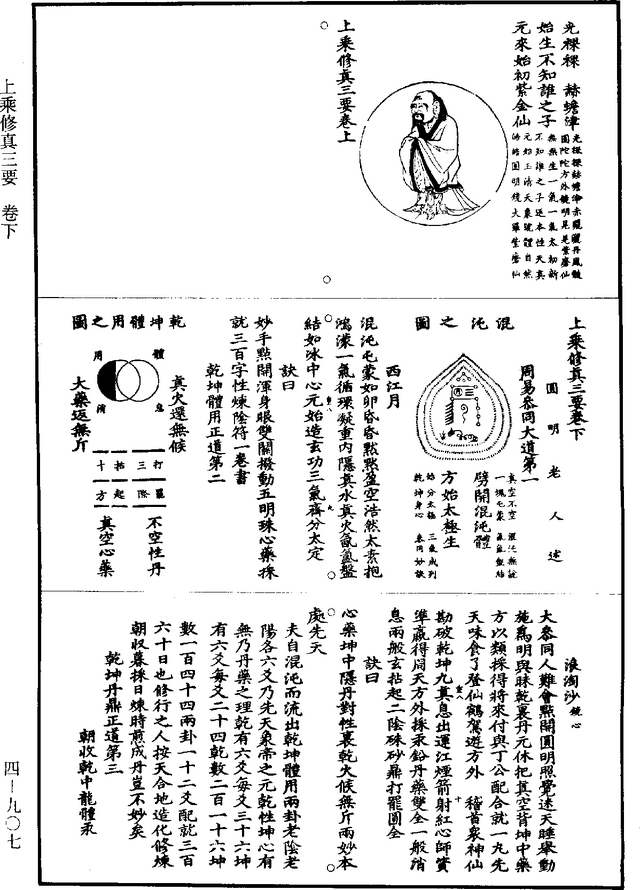 光裸裸　赫蟾津
始生不知誰之子
元來始初紫金仙
上乘修真三要卷上
上乘修真三要　卷下
上乘修真三要卷下
圓　明　老　人　述
周易參同大道第一
混沌之圖
劈開混沌體
方始太極生
西江月
混沌屯蒙如卵昏昏默默盈空浩然太素抱
鴻濛一氣循環凝重內隱真水真火氤氳盤
結如冰中心元始造玄功三氣齊分太定
訣曰
妙手點開渾身眼雙關撥動五明珠心藥採
就三百字性煉陰符一卷書
乾坤體用正道第二
乾坤體用之圖
體
用
消
息
真火還無候
大藥返無斤
打罷
三際
拈起
十方
不空性丹
真空心藥
浪淘沙　
大參同人難會點開圓明照覺迷天睡舉動
施為明與昧乾裏丹元休把真空背坤中藥
方以類採得將來付與丁公配合就一丸先
天味食了登仙鶴駕遊方外　稽首眾神仙
勘破乾坤九真息出還江煙箭射紅心師資
準贏得周天方外採汞鉛丹藥雙全一般消
息兩般玄拈起二陰硃砂鼎打罷圓全
訣曰
心藥坤中隱丹對性裏乾火候無斤兩妙本
處先天
夫自混沌而流出乾坤體用兩卦老陰老
陽各六爻乃先天象帝之元乾性坤心有
無乃丹藥之理乾有六爻每爻三十六坤
有六爻每爻二十四乾數二百一十六坤
數一百四十四兩卦一十二爻配就三百
六十日也修行之人按天合地造化修煉
朝收暮採日煉時煎成丹豈不妙矣
乾坤丹鼎正道第三
朝收乾中龍體汞
四－九〇七